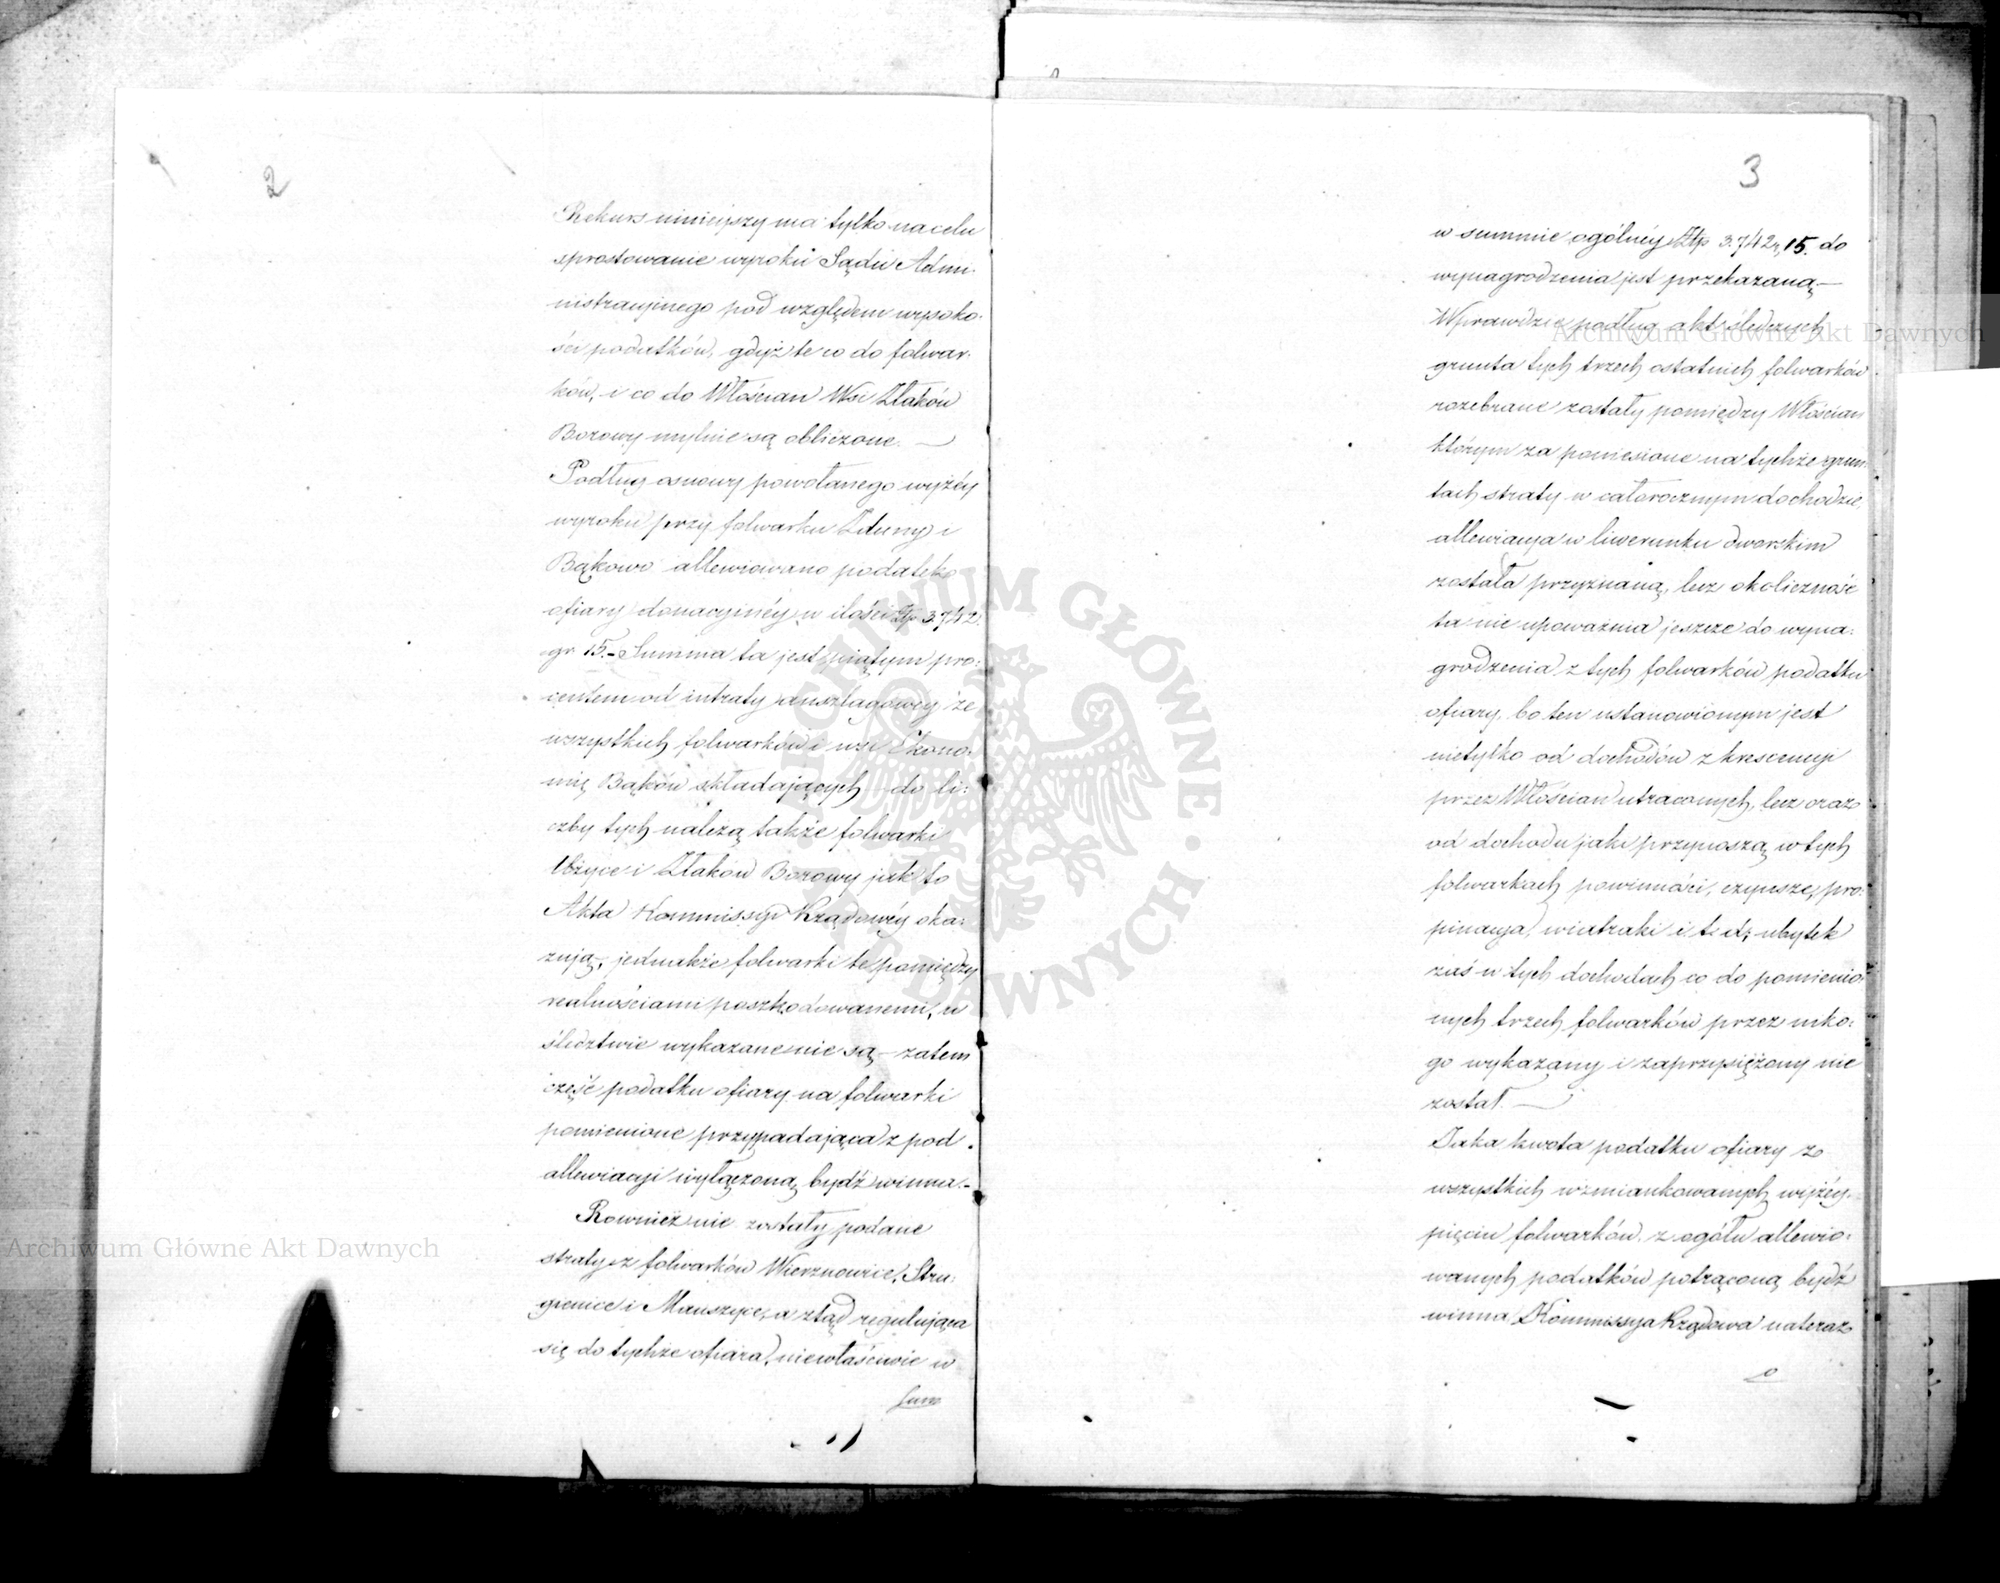 2
Rekurs niniejszy ma tylko na celu
sprostowanie wyroku Sądu Admi-
nistracyjnego pod względem wysoko-
ści podatków, gdyż te co do folwar-
ków, i co do Włościan Wsi Złaków
Borowy mylnie są obliczone. —
Podług osnowy powołanego wyżéy
wyroku przy folwarku Zduny i
Bąkowo allewiowano podatek
ofiary donacyinéy w ilości Złp 3.742.
gr 15.- Summa ta jest piątym pro:
centem od intraty anszlagowéy ze
wszystkich folwarków i wsi Ekono:
mię Bąków składających do li:
czby tych należą także folwarki
Urzyce i Złaków Borowy jak to
Akta Kommissyi Rządowéy oka:
zują, jednakże folwarki te pomiędzy
realnościami poszkodowanemi, w
śledztwie wykazane nie są - zatem
część podatku ofiary na folwarki
pomienione przypadająca z pod
allewiacyi wyłączoną bydź winna.-
Rownież nie zostały podane
straty z folwarków Wierznowice, Stru:
gienice i Mauszyce, a ztąd regulująca
się do tychże ofiara, niewłaściwie w
sum
3
w summie ogólnéy Złp 3.742, 15. do
wynagrodzenia jest przekazaną —
Wprawdzie podług akt śledczych
grunta tych trzech ostatnich folwarków
rozebrane zostały pomiędzy Włościan
którym za poniesione na tychże grun:
tach straty w całorocznym dochodzie,
allewiacya w liwerunku dworskim
została przyznaną, lecz okoliczność
ta nie upoważnia jeszcze do wyna:
grodzenia z tych folwarków podatku
ofiary, bo ten ustanowionym jest
nietylko od dochodów z krescencyi
przez Włościan utraconych, lecz oraz
od dochodu jaki przynoszą w tych
folwarkach powinności, czynsze, pro:
pinacya, wiatraki i t. d; ubytek
zaś w tych dochodach co do pomienio:
nych trzech folwarków przez niko:
go wykazany i zaprzysiężony nie
został. —
Jaka kwota podatku ofiary z
wszystkich wzmiankowanych wyżéy
pięciu folwarków, z ogółu allewio:
wanych podatków potrąconą bydź
winna Kommissya Rządowa nateraz
Archiwum Główne Akt Dawnych
Archiwum Główne Akt Dawnych
ARCHIWUM GŁÓWNE · AKT DAWNYCH ·